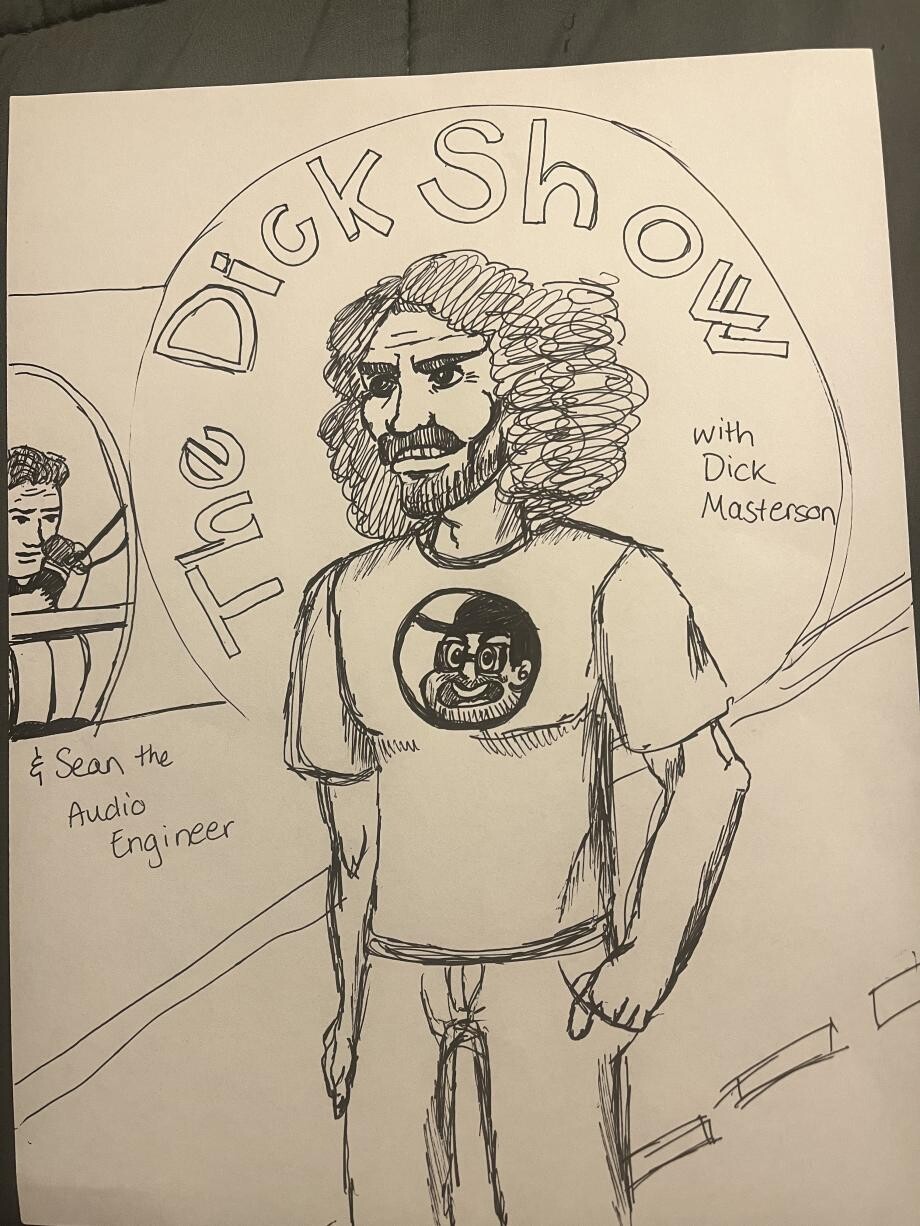 The Dick Show
with
Dick
Masterson
& Sean the
Audio
Engineer